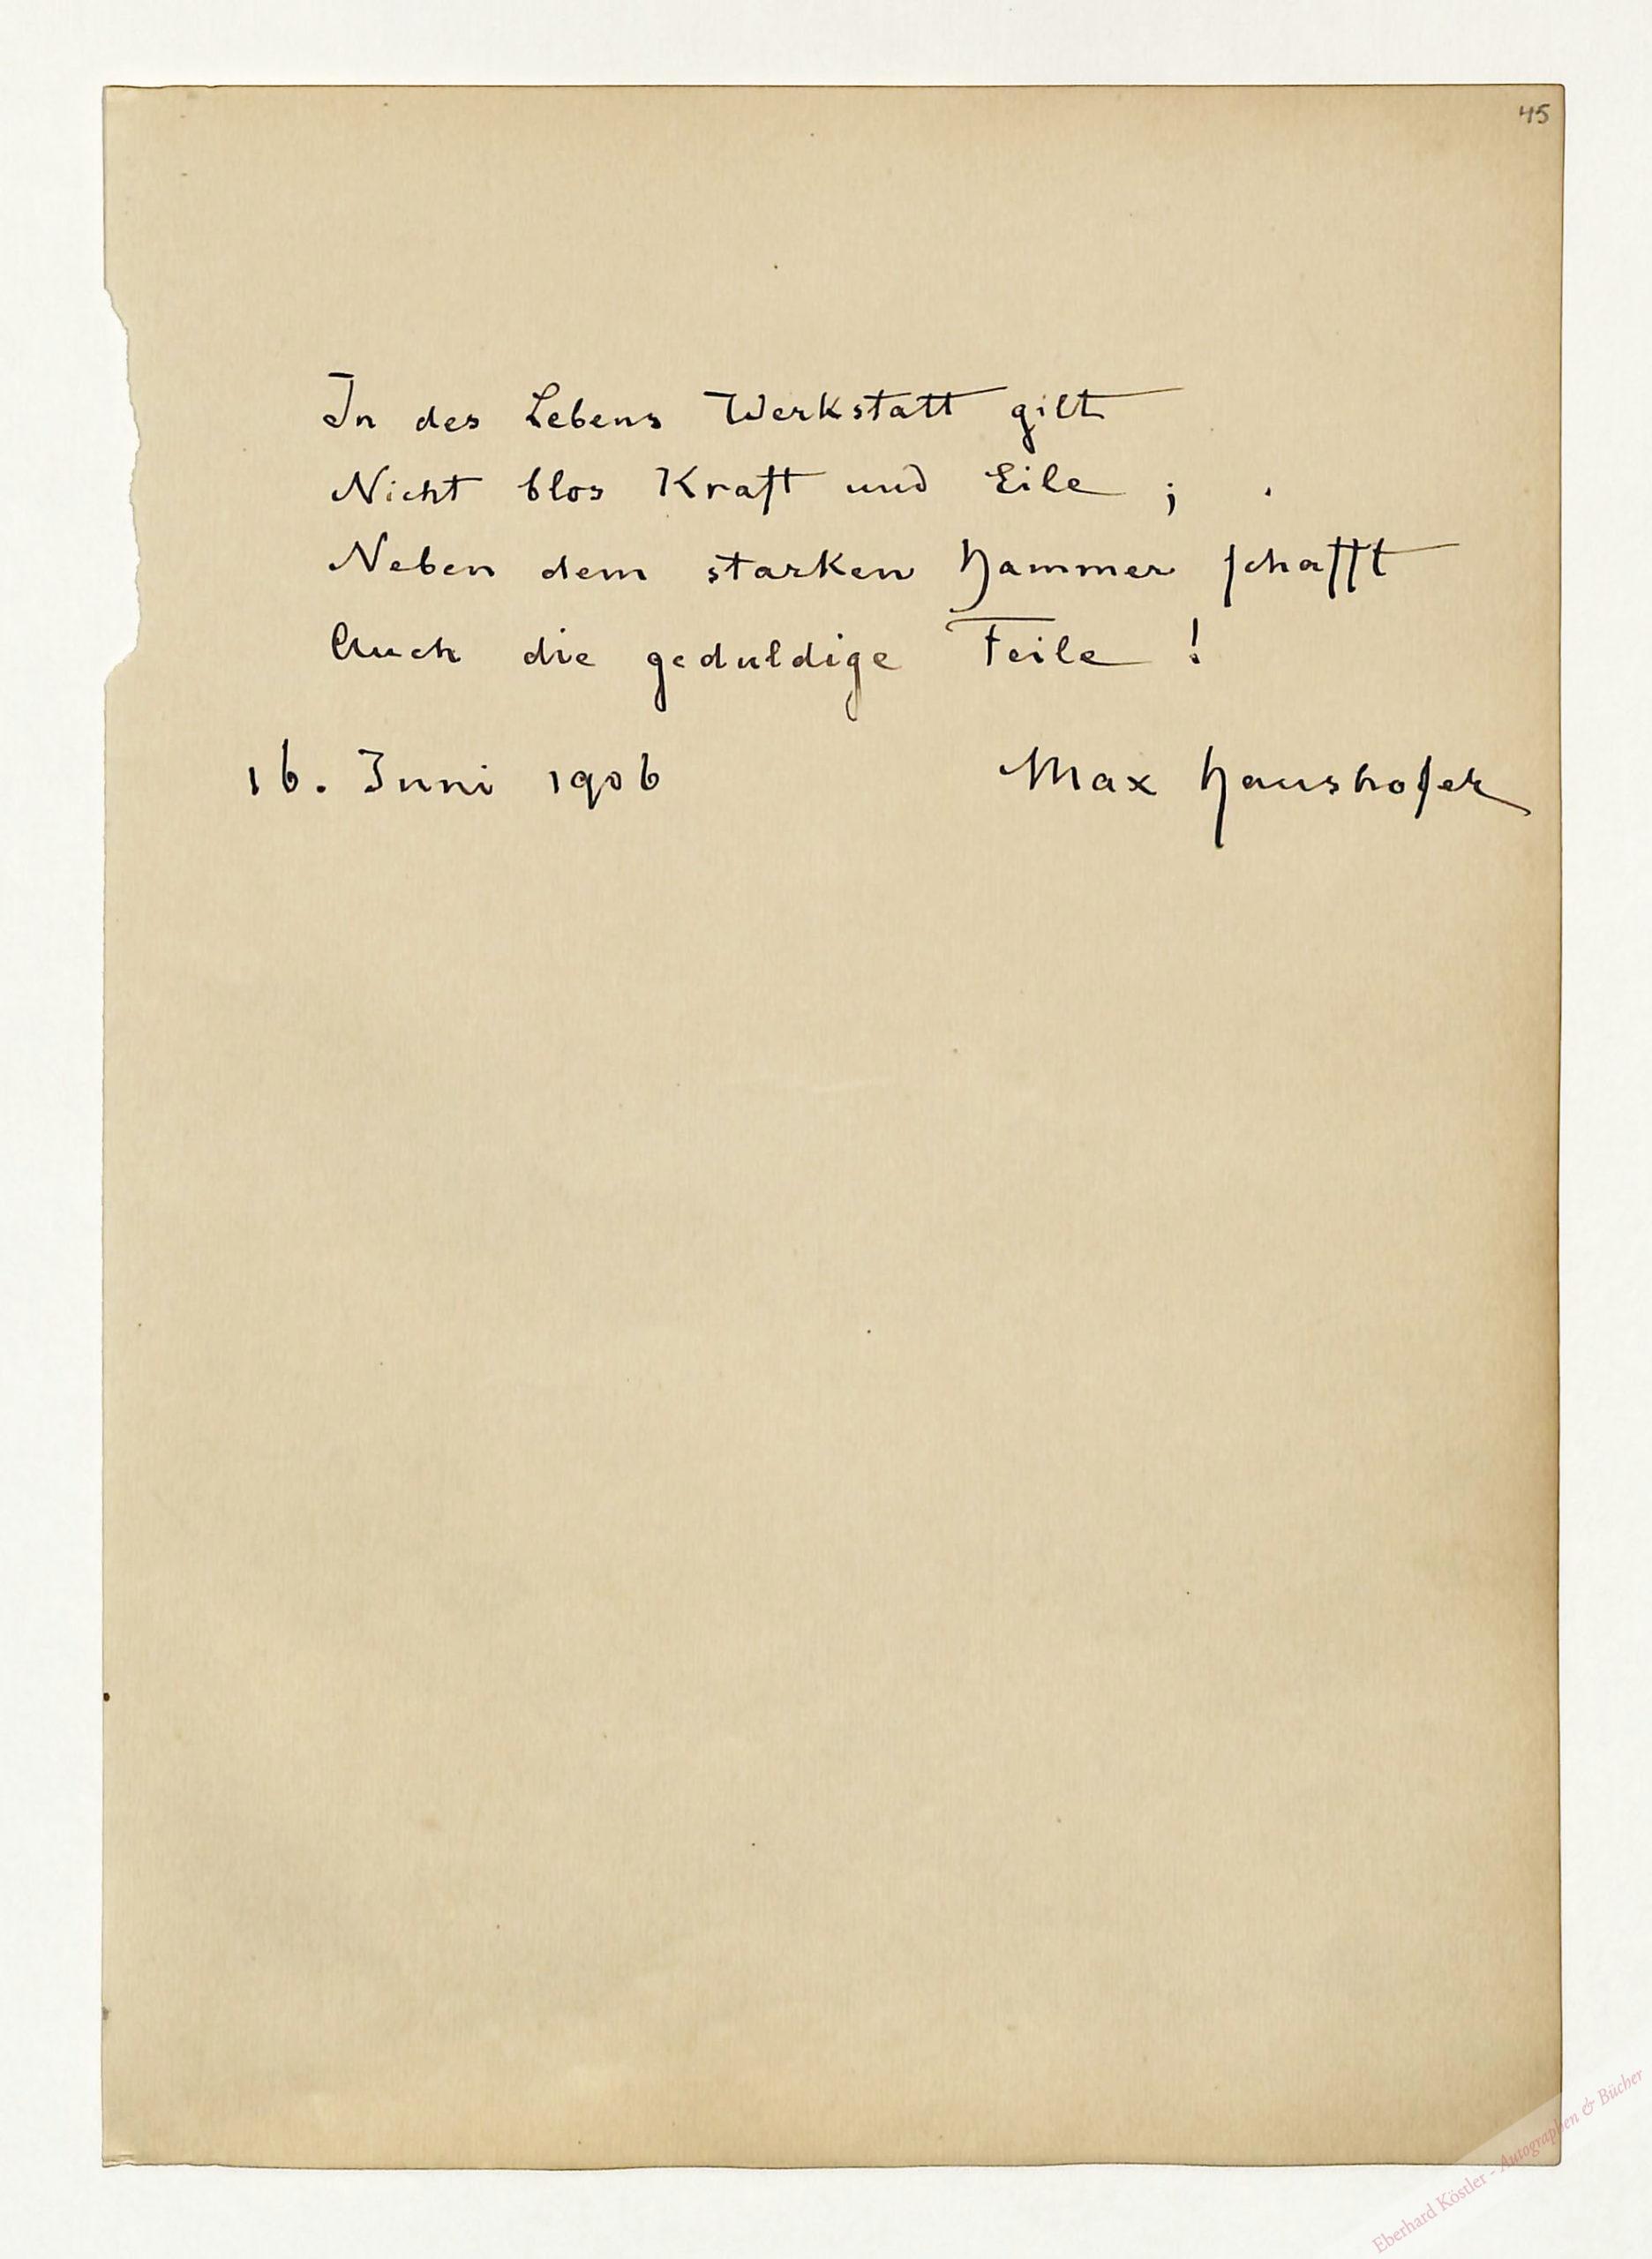 45
In des Lebens Werkstatt gilt
Nicht blos Kraft und Eile ;
Neben dem starken Hammer schafft
Auch die geduldige Feile !
16. Juni 1906 Max Haushofer
Eberhard Köstler - Autographen & Bücher